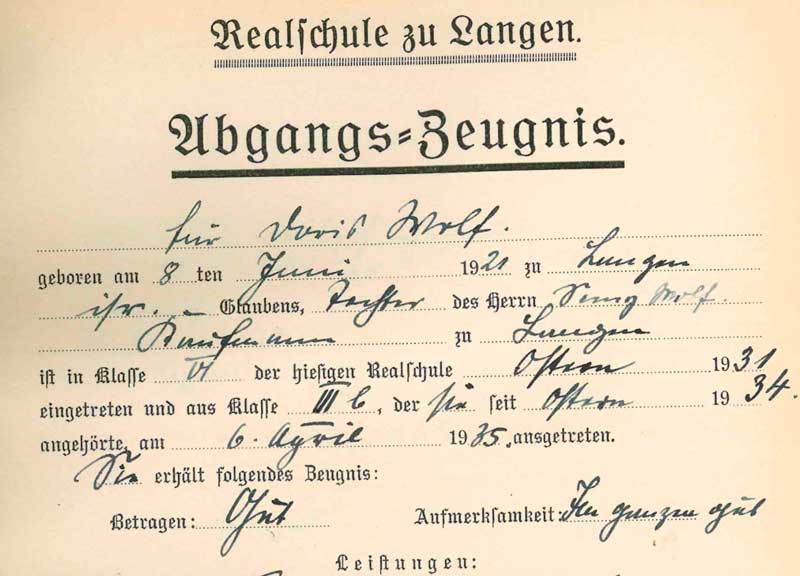 Realschule zu Langen.
Abgangs-Zeugnis.
für Doris Wolf.
geboren am 8 ten Juni 1921 zu Langen
isr. – Glaubens, Tochter des Herrn Semy Wolf.
Kaufmann zu Langen
ist in Klasse VI der hiesigen Realschule Ostern 1931
eingetreten und aus Klasse III b, der sie seit Ostern 1934.
angehörte, am 6. April 1935. ausgetreten.
Sie erhält folgendes Zeugnis:
Betragen: Gut Aufmerksamkeit: Im ganzen gut
Leistungen: